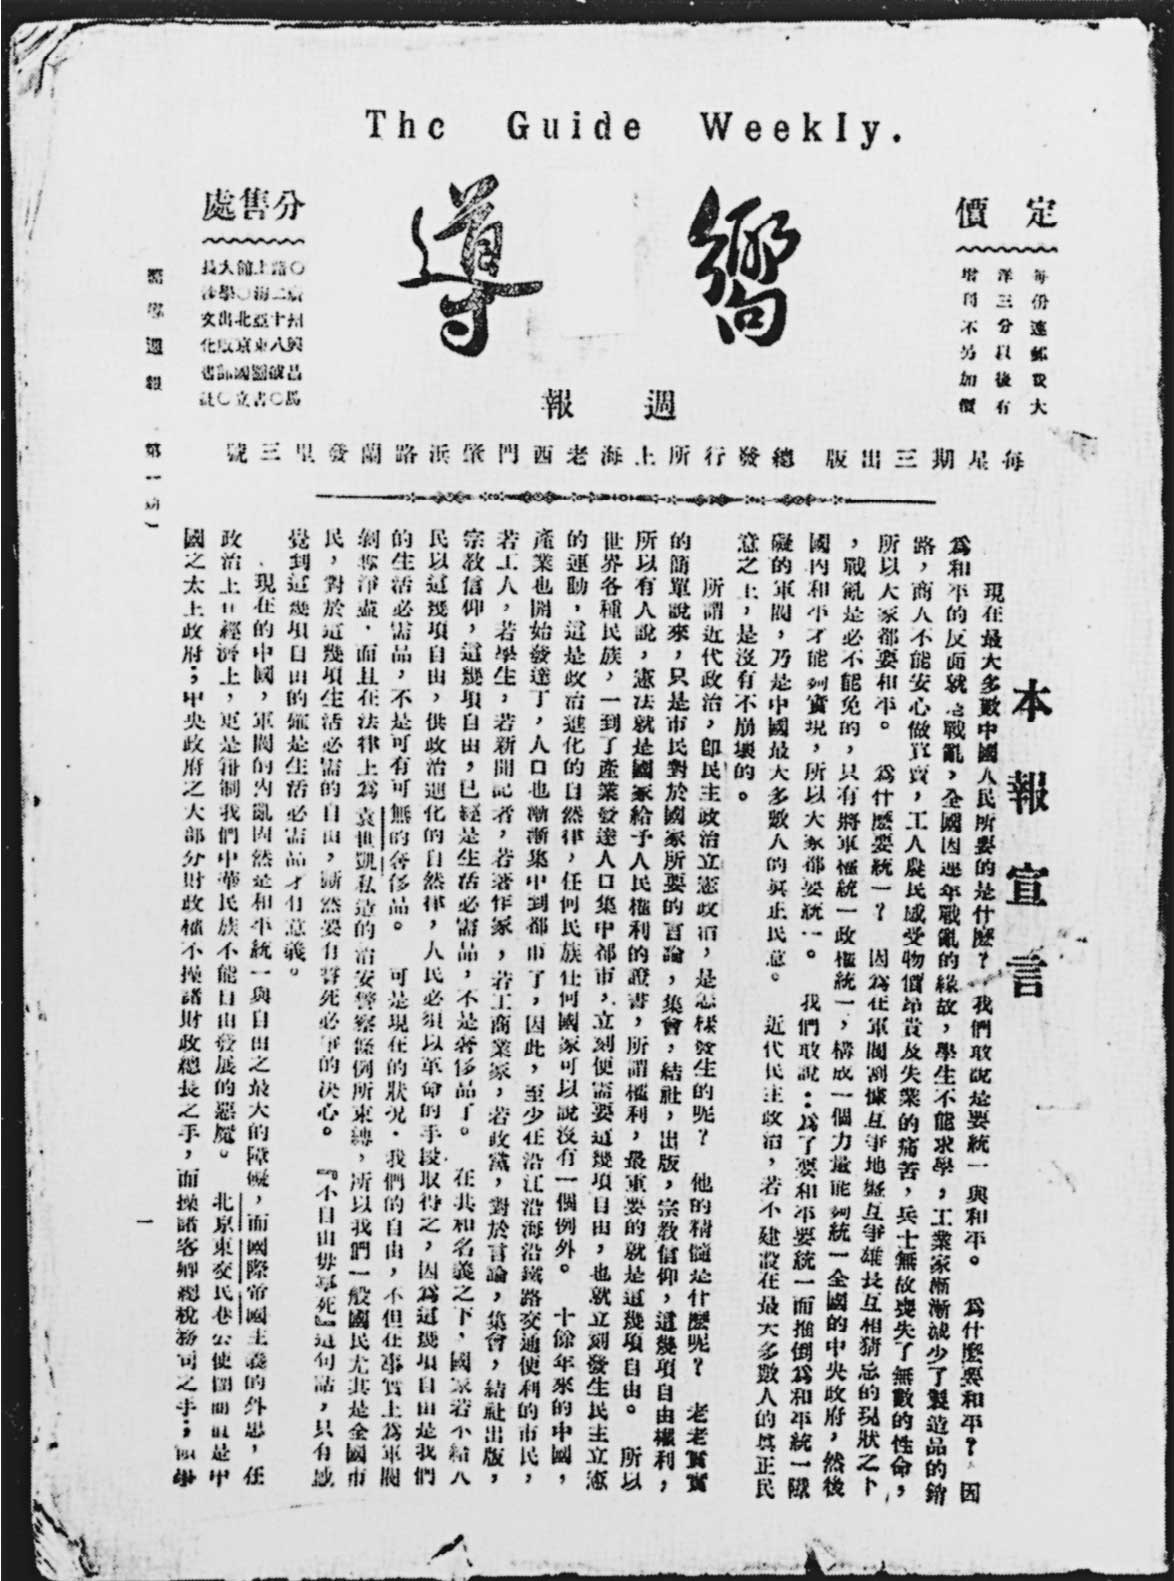 The Guide Weekly.
嚮導
週報
定價
每份連郵費大
洋三分以後有
增刊不另加價
分售處
○廣州興昌馬
路二十八號○
上海亞東圖書
館○北京國立
大學出版部○
長沙文化書社
每星期三出版 總發行所上海老西門肇浜路蘭發里三號
本報宣言
現在最大多數中國人民所要的是什麼？我們敢說是要統一與和平。爲什麼要和平？因
爲和平的反面就是戰亂，全國因連年戰亂的緣故，學生不能求學，工業家漸漸減少了製造品的銷
路，商人不能安心做買賣，工人農民感受物價昂貴及失業的痛苦，兵士無故喪失了無數的性命，
所以大家都要和平。爲什麼要統一？因爲在軍閥割據互爭地盤互爭雄長互相猜忌的現狀之下
，戰亂是必不能免的，只有將軍權統一政權統一，構成一個力量能夠統一全國的中央政府，然後
國內和平才能夠實現，所以大家都要統一。我們敢說：爲了要和平要統一而推倒爲和平統一障
礙的軍閥，乃是中國最大多數人的眞正民意。近代民主政治，若不建設在最大多數人的眞正民
意之上，是沒有不崩壞的。
所謂近代政治，卽民主政治立憲政治，是怎樣發生的呢？他的精髓是什麼呢？老老實實
的簡單說來，只是市民對於國家所要的言論，集會，結社，出版，宗敎信仰，這幾項自由權利，
所以有人說，憲法就是國家給予人民權利的證書，所謂權利，最重要的就是這幾項自由。所以
世界各種民族，一到了產業發達人口集中都市，立刻便需要這幾項自由，也就立刻發生民主立憲
的運動，這是政治進化的自然律，任何民族任何國家可以說沒有一個例外。十餘年來的中國，
產業也開始發達了，人口也漸漸集中到都市了，因此，至少在沿江沿海沿鐵路交通便利的市民，
若工人，若學生，若新聞記者，若著作家，若工商業家，若政黨，對於言論，集會，結社出版，
宗敎信仰，這幾項自由，已經是生活必需品，不是奢侈品了。在共和名義之下，國家若不給人
民以這幾項自由，供政治進化的自然律，人民必須以革命的手段取得之，因爲這幾項自由是我們
的生活必需品，不是可有可無的奢侈品。可是現在的狀況，我們的自由，不但在事實上爲軍閥
剝奪淨盡，而且在法律上爲袁世凱私造的治安警察條例所束縛，所以我們一般國民尤其是全國市
民，對於這幾項生活必需的自由，斷然要有誓死必爭的決心。『不自由毋寧死』這句話，只有感
覺到這幾項自由的確是生活必需品才有意義。
現在的中國，軍閥的內亂固然是和平統一與自由之最大的障礙，而國際帝國主義的外患，在
政治上在經濟上，更是箝制我們中華民族不能自由發展的惡魔。北京東交民巷公使團簡直是中
國之太上政府；中央政府之大部分財政權不操諸財政總長之手，而操諸客卿總稅務司之手；
嚮導週報
第一
一